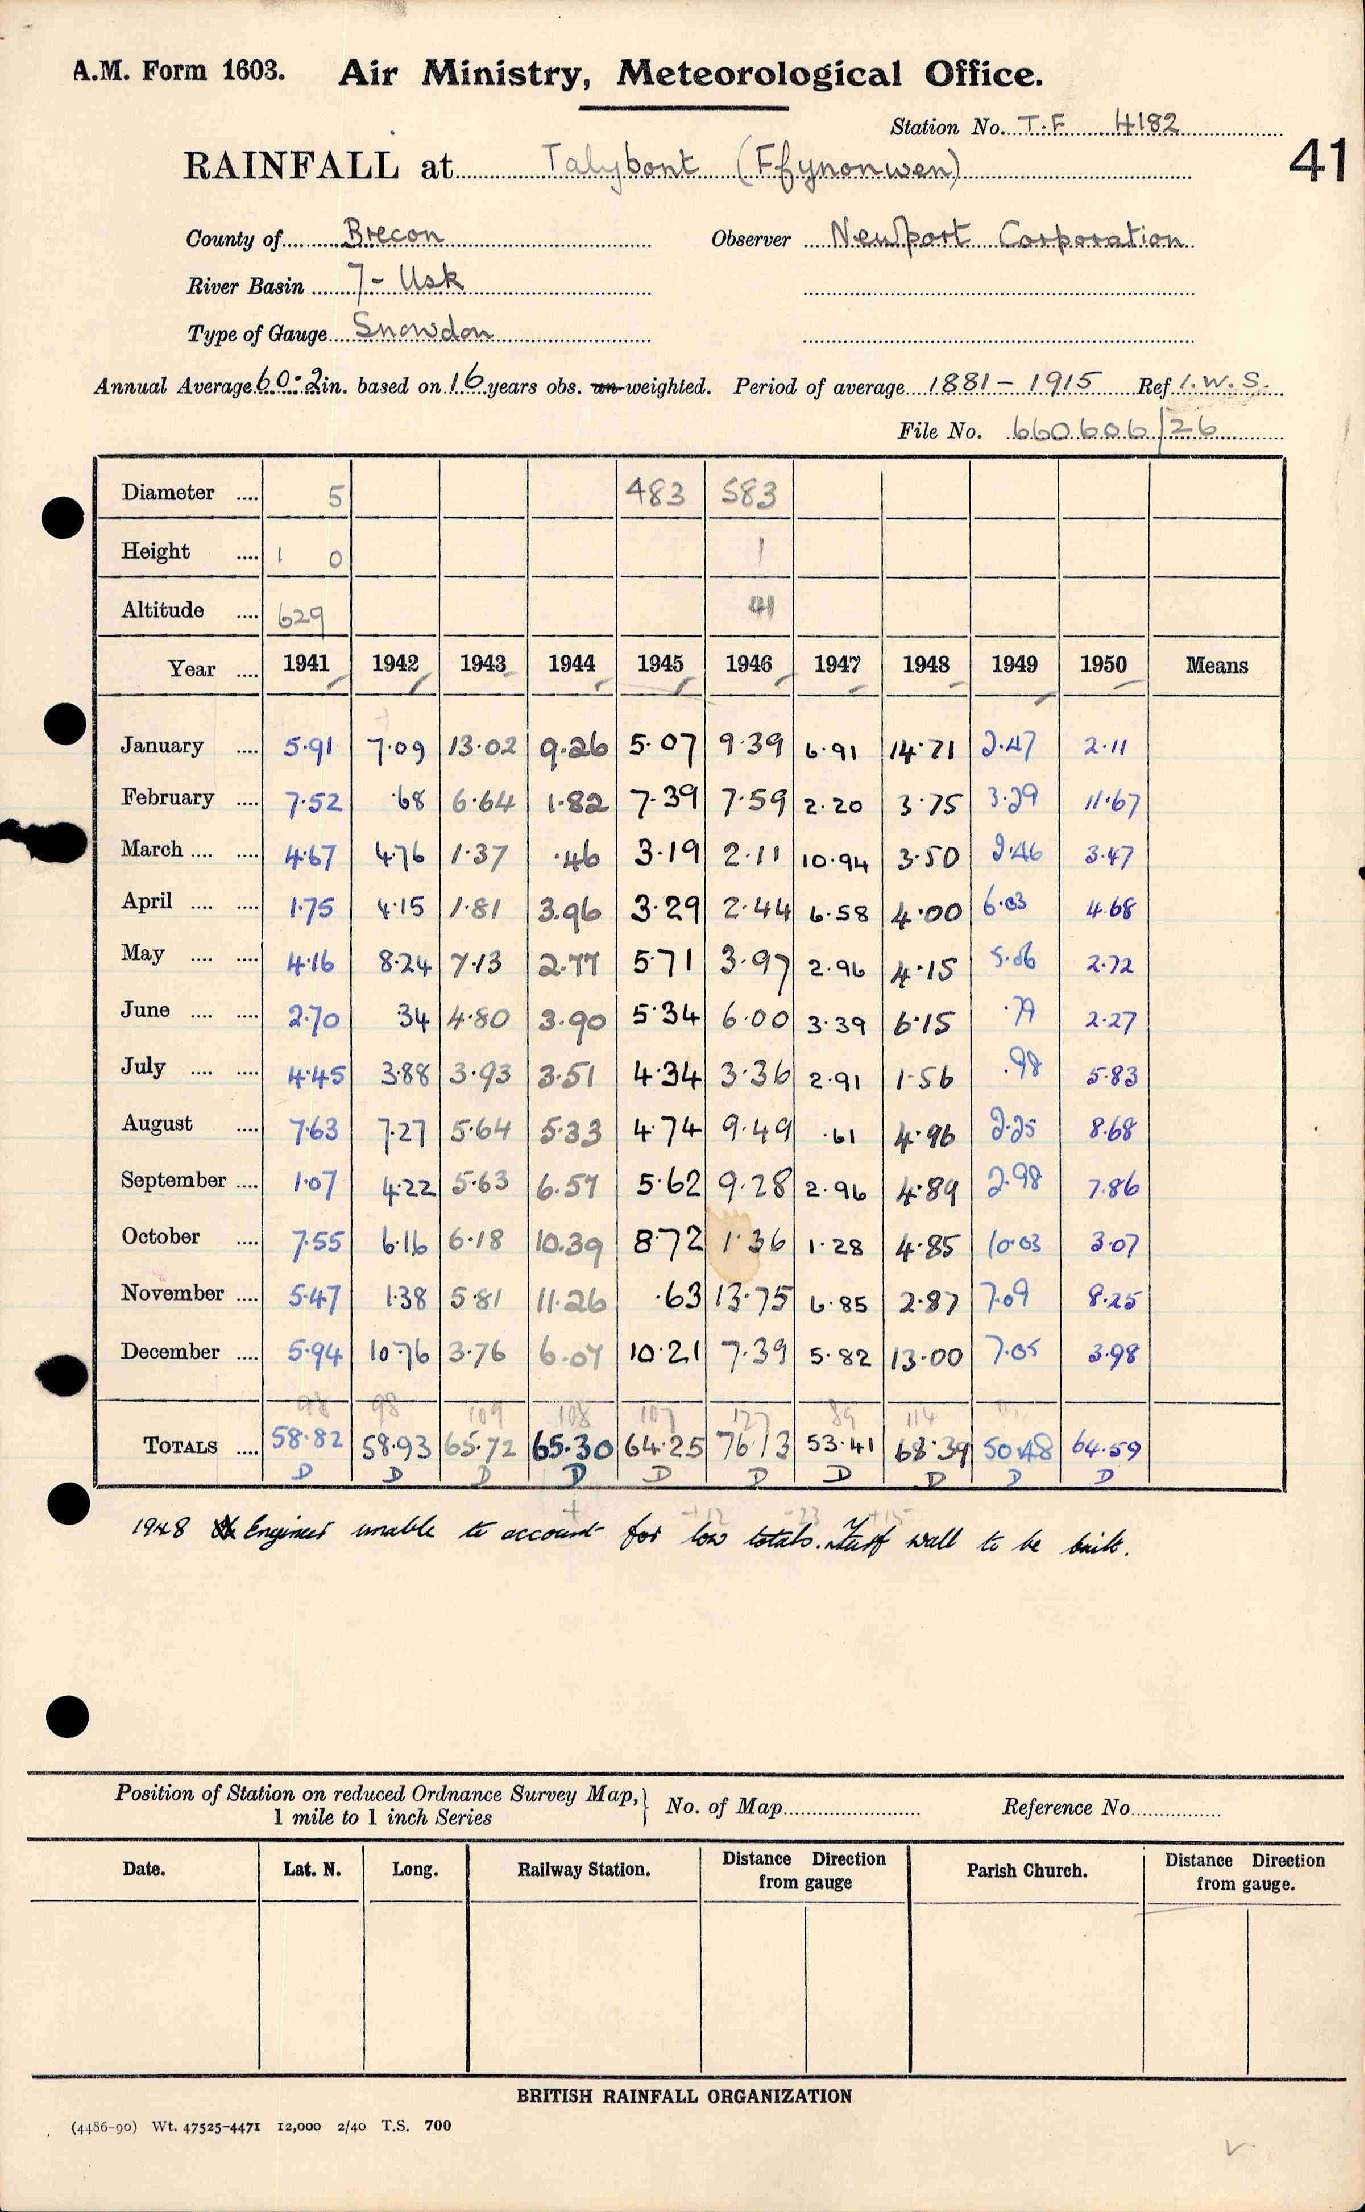 A.M. Form 1603. Air Ministry, Meteorological Office.
Station No. T.F 4182
41
RAINFALL at Talybont (Ffynonwen)
County of Brecon Observer Newport Corporation
River Basin 7 - Usk
Type of Gauge Snowdon
Annual Average 60.2 in. based on 16 years obs. un-weighted. Period of average 1881 - 1915 Ref I.W.S.
File No. 660606/26
Diameter .... 5 483 583
Height .... 1 0 1
Altitude .... 629 41
Year .... 1941 1942 1943 1944 1945 1946 1947 1948 1949 1950 Means
January .... 5.91 7.09 13.02 9.26 5.07 9.39 6.91 14.71 2.47 2.11
February .... 7.52 .68 6.64 1.82 7.39 7.59 2.20 3.75 3.29 11.67
March .... .... 4.67 4.76 1.37 .46 3.19 2.11 10.94 3.50 2.46 3.47
April .... .... 1.75 4.15 1.81 3.96 3.29 2.44 6.58 4.00 6.03 4.68
May .... .... 4.16 8.24 7.13 2.77 5.71 3.97 2.96 4.15 5.06 2.72
June .... .... 2.70 34 4.80 3.90 5.34 6.00 3.39 6.15 .79 2.27
July .... .... 4.45 3.88 3.93 3.51 4.34 3.36 2.91 1.56 .98 5.83
August .... 7.63 7.27 5.64 5.33 4.74 9.49 .61 4.96 2.25 8.68
September .... 1.07 4.22 5.63 6.57 5.62 9.28 2.96 4.89 2.98 7.86
October .... 7.55 6.16 6.18 10.39 8.72 1.36 1.28 4.85 10.03 3.07
November .... 5.47 1.38 5.81 11.26 .63 13.75 6.85 2.87 7.09 8.25
December .... 5.94 10.76 3.76 6.07 10.21 7.39 5.82 13.00 7.05 3.98
98 98 109 108 107 127 89 114
TOTALS .... 58.82 58.93 65.72 65.30 64.25 76.13 53.41 68.39 50.48 64.59
D D D D D D D D D D
+ +12 -23 +15
1948 Engineer unable to account for low totals. Turf wall to be built.
Position of Station on reduced Ordnance Survey Map, 1 mile to 1 inch Series } No. of Map Reference No.
Date. Lat. N. Long. Railway Station. Distance Direction from gauge Parish Church. Distance Direction from gauge.
BRITISH RAINFALL ORGANIZATION
(4486-90) Wt. 47525-4471 12,000 2/40 T.S. 700